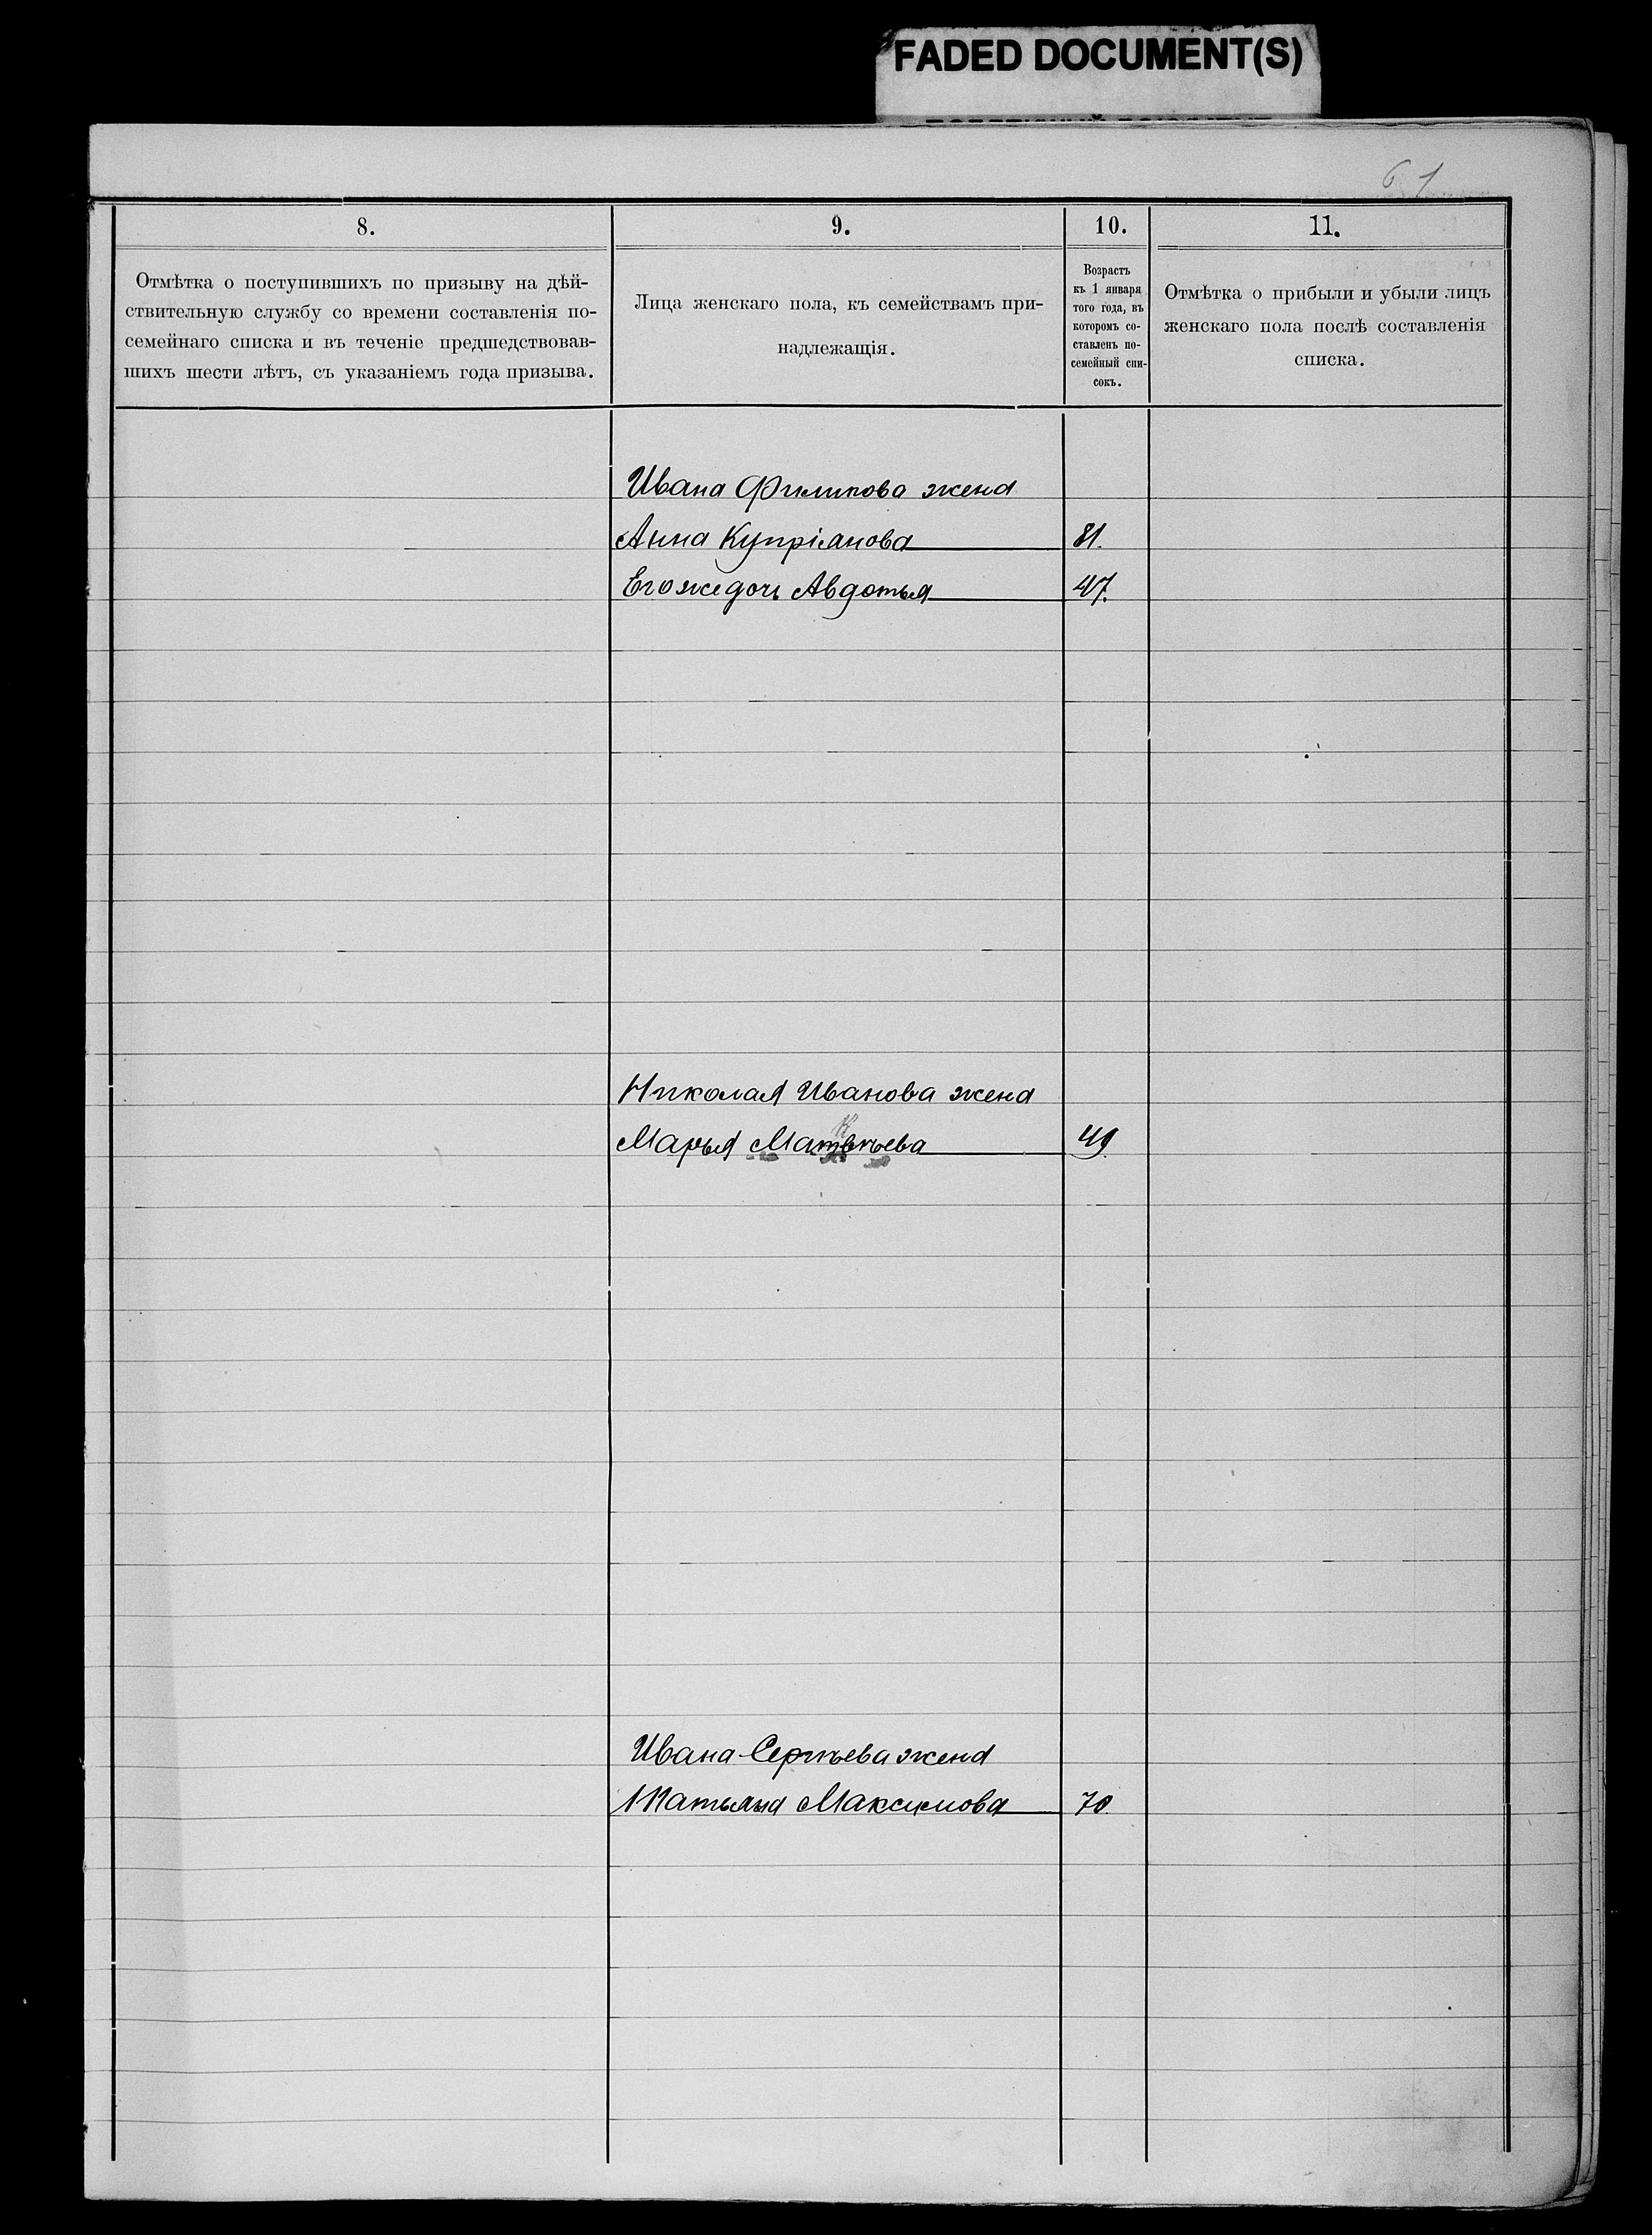 FADED DOCUMENT(S)
61
8.
9.
10.
11.
Отмѣтка о поступившихъ по призыву на дѣй-
ствительную службу со времени составленія по-
семейнаго списка и въ теченіе предшедствовав-
шихъ шести лѣтъ, съ указаніемъ года призыва.
Лица женскаго пола, къ семействамъ при-
надлежащія.
Возрастъ
къ 1 января
того года, въ
которомъ со-
ставленъ по-
семейный спи-
сокъ.
Отмѣтка о прибыли и убыли лицъ
женскаго пола послѣ составленія
списка.
Ивана Филипова жена
Анна Купріанова 81.
Его же дочь Авдотья 47.
Николая Иванова жена
Марья Матвѣева 49
Ивана Сергѣева жена
Татьяна Максимова 70.